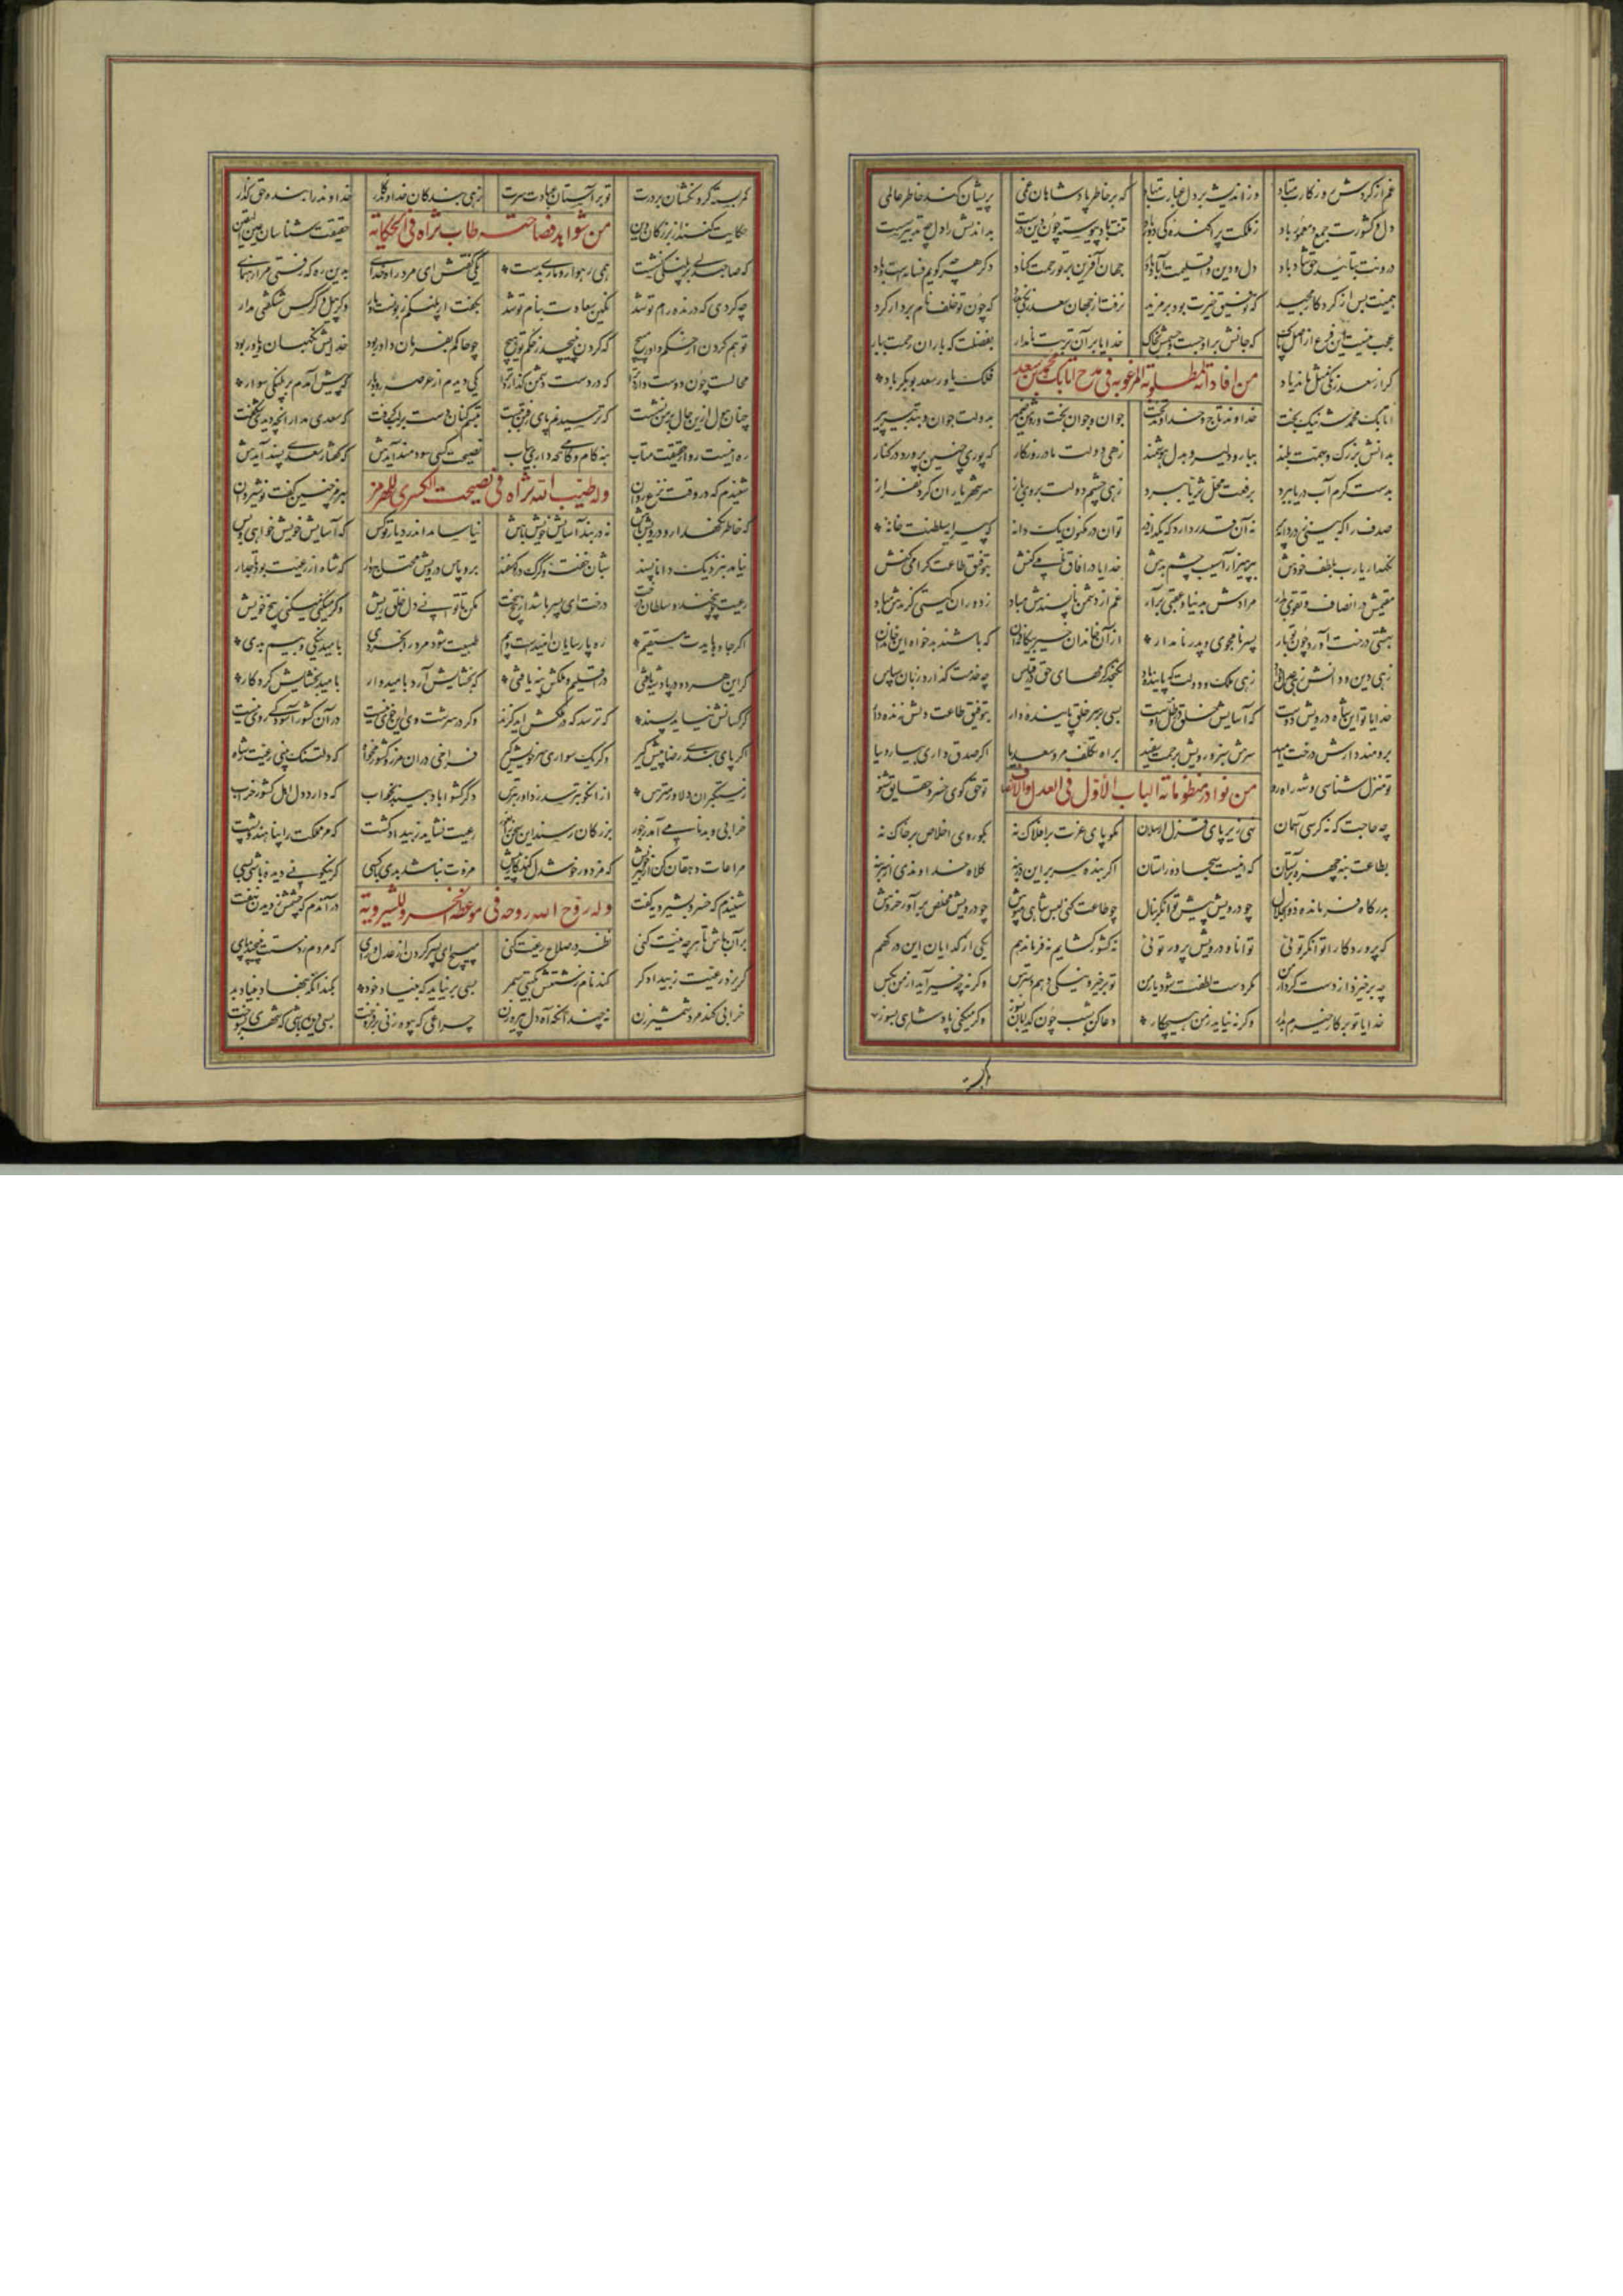 غم از گردش روزگارت مباد وز اندیشه بر دل غبارت مباد که بر خاطر پادشاهان غمی پریشان کند خاطر عالمی
دل و کشورت جمع و معمور باد ز ملکت پراکندگی دور باد تنت باد پیوسته چون دین درست بداندیش را دل چو تدبیر سست
درونت بتائید حق شاد باد دل و دین و اقلیمت آباد باد جهان آفرین بر تو رحمت کناد دگر هر چه گویم فسانه است و باد
همینت بس از کردگار مجید که توفیق خیرت بود بر مزید نرفت از جهان سعد زنگی بدرد که چون تو خلف نام بردار کرد
عجب نیست این فرع از اصل پاک که جانش بر اوجست و جسمش بخاک خدایا بر آن تربت نامدار بفضلت که باران رحمت ببار
گر از سعد زنگی مثل ماند یاد فلک یاور سعد بوبکر باد
من افاداته المطلوبه المرغوبه فی مدح اتابک محمد بن سعد
اتابک محمد شه نیک بخت خداوند تاج و خداوند تخت جوان و جوان بخت و روشن ضمیر بدولت جوان و بتدبیر پیر
بدانش بزرگ و بهمت بلند ببازو دلیر و بدل هوشمند زهی دولت مادر روزگار که پوری چنین پرورد در کنار
بدست کرم آب دریا ببرد برفعت محل ثریا ببرد زهی چشم دولت بروی تو باز سر شهریاران گردن فراز
صدف را که بینی ز دردانه پر نه آن قدر دارد که یکدانه در توان در مکنون یک دانه که پیرایه سلطنت خانه
نگهدار یارب بلطف خودش بپرهیز از آسیب چشم بدش خدایا در آفاق نامی کنش بتوفیق طاعت گرامی کنش
مقیمش در انصاف و تقوی بدار مرادش بدنیا و عقبی برآر غم از دشمن ناپسندش مباد ز دوران گیتی گزندش مباد
بهشتی درخت آورد چون تو بار پسر نامجوی و پدر نامدار از آن خاندان خیر بیگانه دان که باشند بدخواه این خاندان
زهی دین و دانش زهی عدل و داد زهی ملک و دولت که پاینده باد نگنجد کرمهای حق در قیاس چه خدمت گذارد زبان سپاس
خدایا تو این شاه درویش دوست که آسایش خلق در ظل اوست بسی بر سر خلق پاینده دار بتوفیق طاعت دلش زنده دار
برومند دارش درخت امید سرش سبز و رویش برحمت سفید براه تکلف مرو سعدیا اگر صدق داری بیار و بیا
تو منزل شناسی و شه راه رو تو حق گوی خسرو حقایق شنو
من نوادر منظوماته الباب الأول فی العدل والانصاف
چه حاجت که نه کرسی آسمان نهی زیر پای قزل ارسلان مگو پای عزت بر افلاک نه بگو روی اخلاص بر خاک نه
بطاعت بنه چهره بر آستان که اینست سجاده راستان اگر بنده سر بر این در بنه کلاه خداوندی از سر بنه
بدرگاه فرمانده ذوالجلال چو درویش پیش توانگر بنال چو طاعت کنی لبس شاهی مپوش چو درویش مخلص برآور خروش
که پروردگارا توانگر توئی توانا و درویش پرور توئی نه کشور گشایم نه فرماندهم یکی از گدایان این درگهم
چه برخیزد از دست کردار من مگر دست لطفت شود یار من تو بر خیر و نیکی دهم دسترس وگرنه چه خیر آید از من بکس
خدایا تو بر کار خیرم بدار وگرنه نیاید ز من هیچکار دعا کن بشب چون گدایان بسوز وگر میکنی پادشاهی بروز
کمربسته
کمربسته گردنکشان بر درت تو بر آستان عبادت سرت زهی بندگان خداوندگار خداوند را بنده حق گذار
من شواهد فصاحته طاب ثراه فی الحکایة
حکایت کنند از بزرگان دین حقیقت شناسان عین الیقین
که صاحبدلی بر پلنگی نشست همی راند رهوار و ماری بدست یکی گفتش ای مرد راه خدای بدین ره که رفتی مرا ره نمای
چه کردی که درنده رام تو شد نگین سعادت بنام تو شد بگفت ار پلنگم زبونست و مار وگر پیل و کرکس شگفتی مدار
تو هم گردن از حکم داور مپیچ که گردن نپیچد ز حکم تو هیچ چو حاکم بفرمان داور بود خدایش نگهبان و یاور بود
محالست چون دوست دارد ترا که در دست دشمن گذارد ترا یکی دیدم از عرصه رودبار که پیش آمدم بر پلنگی سوار
چنان هول ازین حال بر من نشست که ترسیدنم پای رفتن ببست تبسم کنان دست بر لب گرفت که سعدی مدار آنچه دیدی شگفت
ره اینست رو از حقیقت متاب بنه گام و کامی که داری بیاب نصیحت کسی سودمند آیدش که گفتار سعدی پسند آیدش
وله طیب الله ثراه فی نصیحت الکسری للهرمز
شنیدم که در وقت نزع روان بهرمز چنین گفت نوشیروان
که خاطر نگهدار درویش باش نه در بند آسایش خویش باش نیاساید اندر دیار تو کس که آسایش خویش خواهی و بس
نیاید بنزدیک دانا پسند شبان خفته و گرگ در گوسفند برو پاس درویش محتاج دار که شاه از رعیت بود تاجدار
رعیت چو بیخند و سلطان درخت درخت ای پسر باشد از بیخ سخت مکن تا توانی دل خلق ریش وگر میکنی میکنی بیخ خویش
اگر جاده بایدت مستقیم ره پارسایان امیدست و بیم طبیعت شود مرد را بخردی بامید نیکی و بیم بدی
گر این هر دو در پادشه یافتی در اقلیم و ملکش پنه یافتی که بخشایش آرد بامیدوار بامید بخشایش کردگار
گزند کسانش نیاید پسند که ترسد که در ملکش آید گزند وگر در سرشت وی این خوی نیست در آن کشور آسودگی روی نیست
اگر پای بندی رضا پیش گیر وگر یک سواری سر خویش گیر فراخی در آن مرز و کشور مخواه که دلتنگ بینی رعیت ز شاه
ز مستکبران دلاور بترس از آنکو نترسد ز داور بترس دگر کشور آباد بیند بخواب که دارد دل اهل کشور خراب
خرابی و بدنامی آمد ز جور بزرگان رسند این سخن را بغور رعیت نشاید ز بیداد کشت که مر مملکت را پناهند و پشت
مراعات دهقان کن از بهر خویش که مزدور خوشدل کند کار بیش مروت نباشد بدی با کسی کزو نیکوئی دیده باشی بسی
وله روح الله روحه فی موعظة الخسرو للشیرویة
شنیدم که خسرو بشیرویه گفت در آندم که چشمش ز دیدن بخفت
بر آن باش تا هر چه نیت کنی نظر در صلاح رعیت کنی مپیچ ای پسر گردن از عدل و رای که مردم ز دستت نپیچند پای
گریزد رعیت ز بیدادگر کند نام زشتش بگیتی سمر بسی برنیاید که بنیاد خود بکند آنکه بنهاد بنیاد بد
خرابی کند مرد شمشیر زن نه چندانکه آه دل پیره زن چراغی که بیوه زنی برفروخت بسی دیده باشی که شهری بسوخت